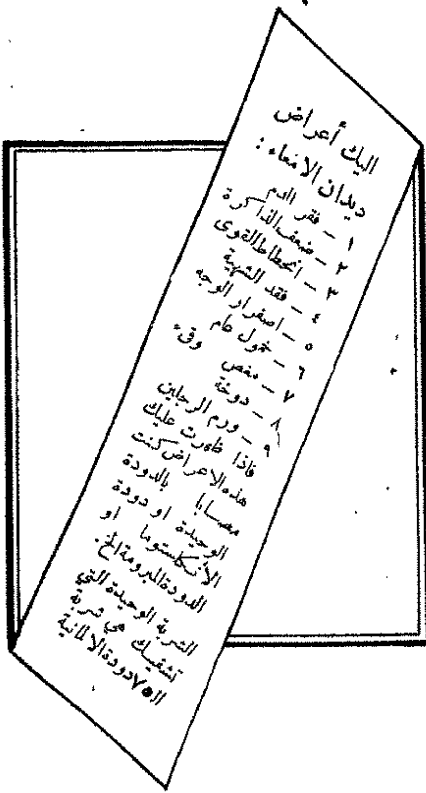 اليك أعراض
ديدان الامعاء :
١ – فقر الدم
٢ – ضعف الذاكرة
٣ – انحطاط القوى
٤ – فقد الشهية
٥ – اصفرار الوجه
٦ – خمول عام
٧ – مغص وقىء
٨ – دوخة
٩ – ورم الرجلين
فاذا ظهرت عليك
هذه الاعراض كنت
مصابا بالدودة
الوحيدة او دودة
الأنكلستوما او
الدودة المبرومة الخ.
الشربة الوحيدة التي
تشفيك هي شربة
الـ ٧٥ دودة الالمانية